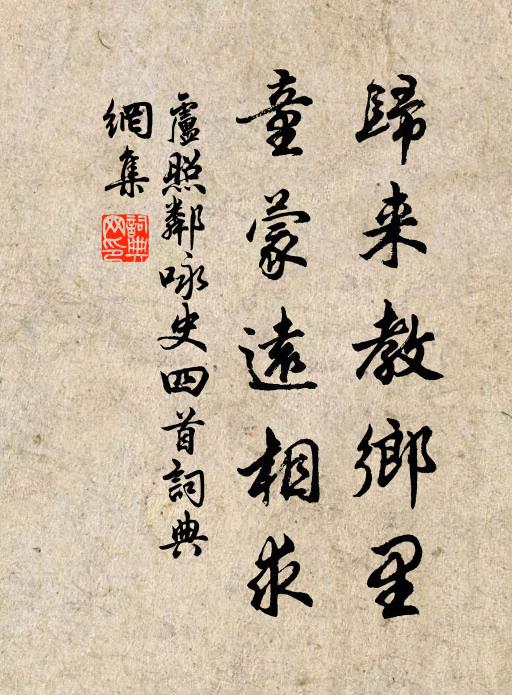 歸来教鄉里
童蒙遠相求
盧照鄰咏史四首詞典
網集
詞典网印